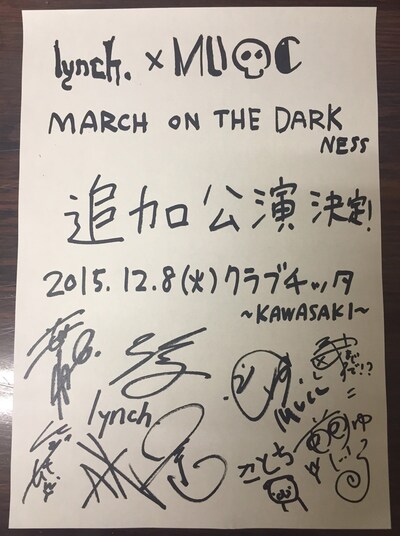 lynch. × MUCC
MARCH ON THE DARK
NESS
追加公演決定!
2015.12.8(火)クラブチッタ
~KAWASAKI~
lynch.
MUCC
さとち